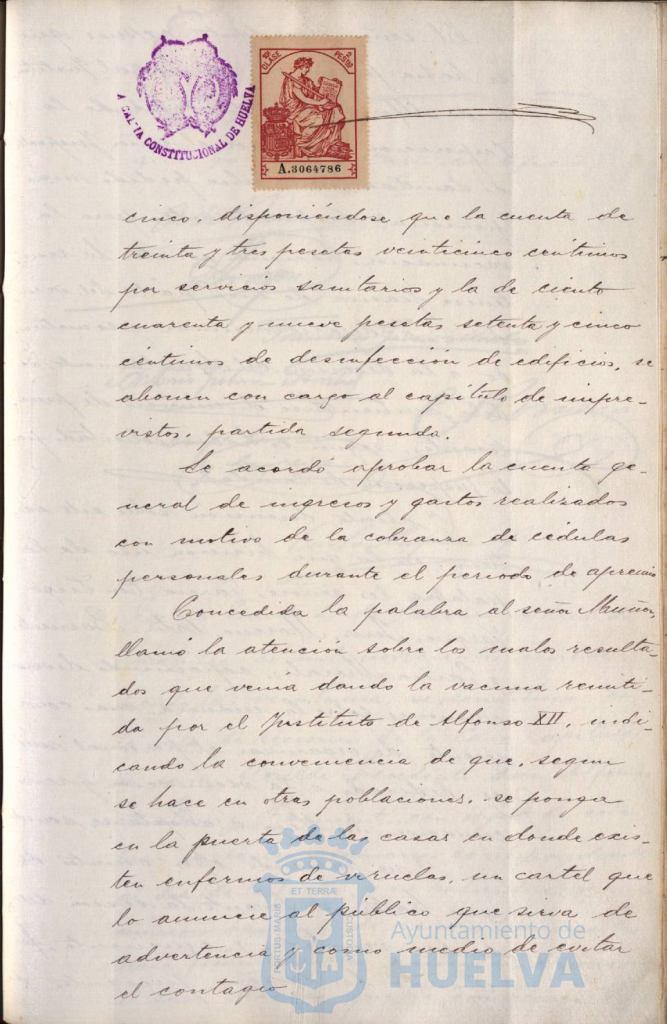 A CALDIA CONSTITUCIONAL DE HUELVA
10ª CLASE
2 PESETAS
A.3064786
cinco, disponiéndose que la cuenta de
treinta y tres pesetas veinticinco centimos
por servicios sanitarios y la de ciento
cuarenta y nueve pesetas setenta y cinco
céntimos de desinfección de edificios, se
abonen con cargo al capítulo de impre-
vistos, partida segunda.
Se acordó aprobar la cuenta ge-
neral de ingresos y gastos realizados
con motivo de la cobranza de cédulas
personales durante el periodo de apremio
Concedida la palabra al señor Muñoz,
llamó la atención sobre los malos resulta-
dos que venia dando la vacuna remiti-
da por el Instituto de Alfonso XII, indi-
cando la conveniencia de que, segun
se hace en otras poblaciones, se ponga
en la puerta de las casas en donde exis-
ten enfermos de viruelas, un cartel que
lo anuncie al público que sirva de
advertencia y como medio de evitar
el contagio.
ET TERRÆ
PORTUS MARIS
CUSTODIA
Ayuntamiento de
HUELVA